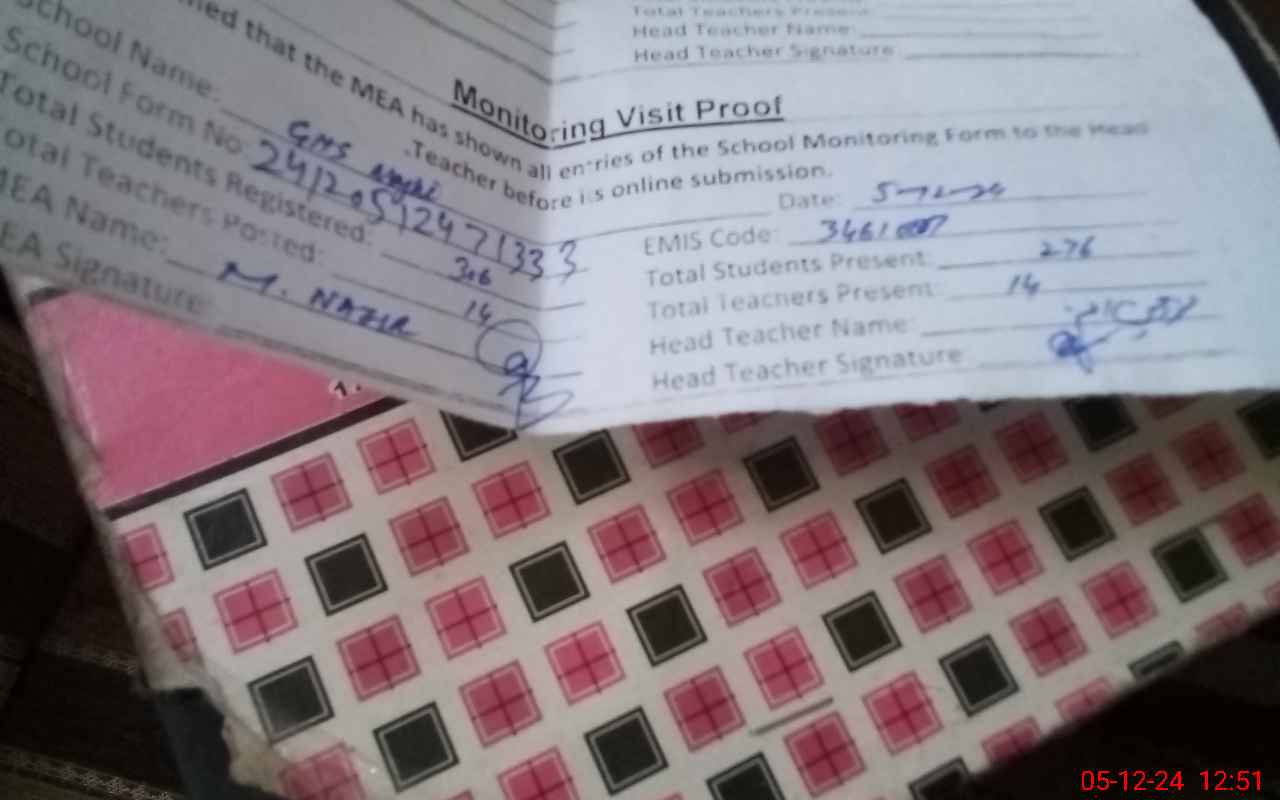 Total Teachers Present:
Head Teacher Name:
Head Teacher Signature:
Monitoring Visit Proof
that the MEA has shown all entries of the School Monitoring Form to the Head
.Teacher before its online submission.
School Name: GMS Date: 5-12-24
School Form No 24120512471333 EMIS Code: 3461
Total Students Registered: 306 Total Students Present: 276
Total Teachers Posted: 14 Total Teachers Present: 14
MEA Name: M. NAZIR Head Teacher Name:
EA Signature: Head Teacher Signature
05-12-24 12:51